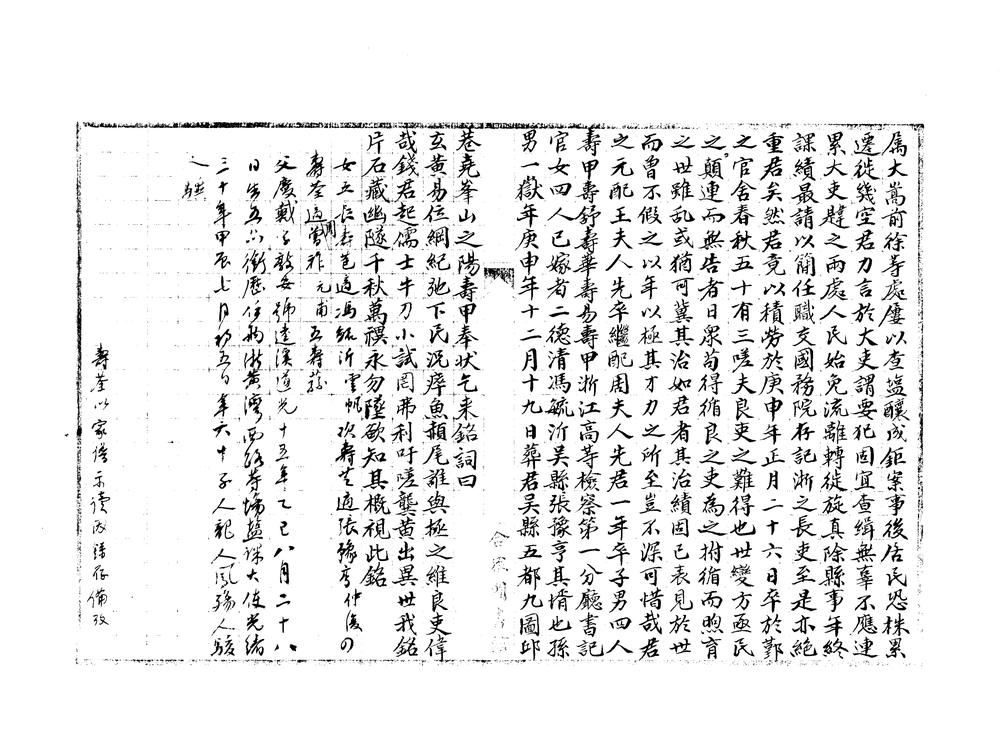 屬大嵩前徐等處屢以查鹽釀成鉅案事後居民恐株累
遷徙幾空君力言於大吏謂要犯固宜查緝無辜不應連
累大吏韙之兩處人民始免流離轉徙旋真除縣事年終
課績最請以簡任職交國務院存記浙之長吏至是亦絕
重君矣然君竟以積勞於庚申年正月二十六日卒於鄞
之官舍春秋五十有三嗟夫良吏之難得也世變方亟民
之顛連而無告者日眾苟得循良之吏為之拊循而煦育
之世雖乱或猶可冀其治如君者其治績固已表見於世
而曾不假之以年以極其才力之所至豈不深可惜哉君
之元配王夫人先卒繼配周夫人先君一年卒子男四人
壽甲壽舒壽華壽易壽甲浙江高等檢察第一分廳書記
官女四人已嫁者二德清馮毓沂吴縣張豫亨其壻也孫
男一獄年庚申年十二月十九日葬君吴縣五都九圖邱
巷堯峯山之陽壽甲奉狀乞來銘詞曰
玄黃易位綱紀弛下民況瘁魚赬尾誰與極之維良吏偉
哉錢君起儒士牛刀小試罔弗利吁嗟龔黃出異世我銘
片石藏幽隧千秋萬禩永勿墜欲知其概視此銘
女五長壽適馮毓沂雲帆次壽芝適張豫亨仲俊の
壽荃適元甫五壽蓀
父慶戴子敬安號達溪道光十五年乙巳八月二十八
日生五品銜歷任兩浙黃灣西路等場鹽課大使光緒
三十年甲辰七月初五日年六十子人龍人鳳殤人駿
人驥
壽荃以家譜示讀故錄存備攷